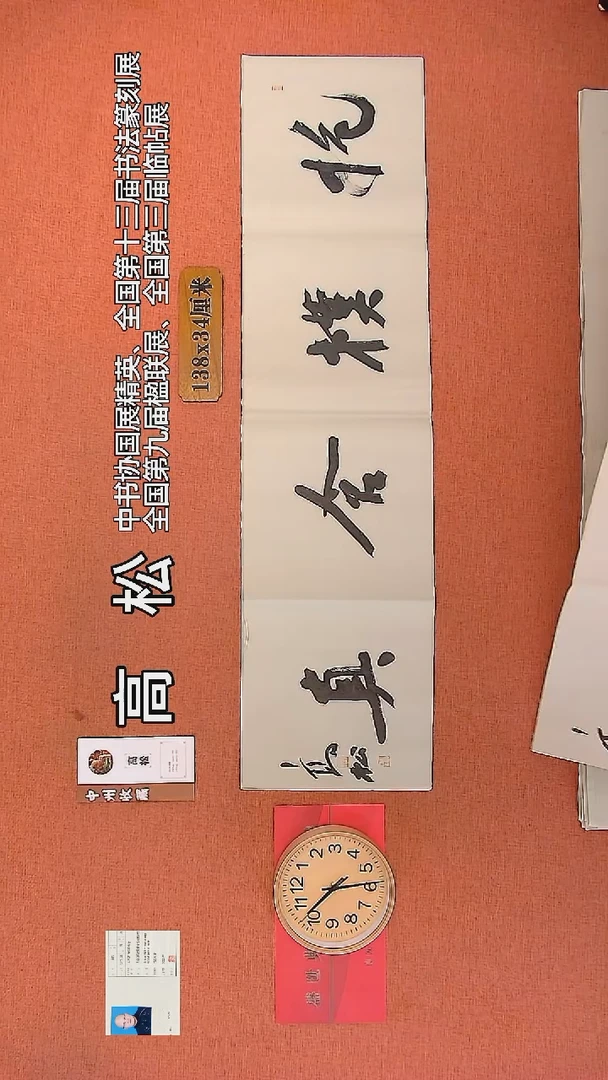 中书协国展精英、全国第十三届书法篆刻展
全国第九届楹联展、全国第三届临帖展
高 松
138x34厘米
抱樸含真
高松
高松
中州收藏
12
1
2
3
4
5
6
7
8
9
10
11